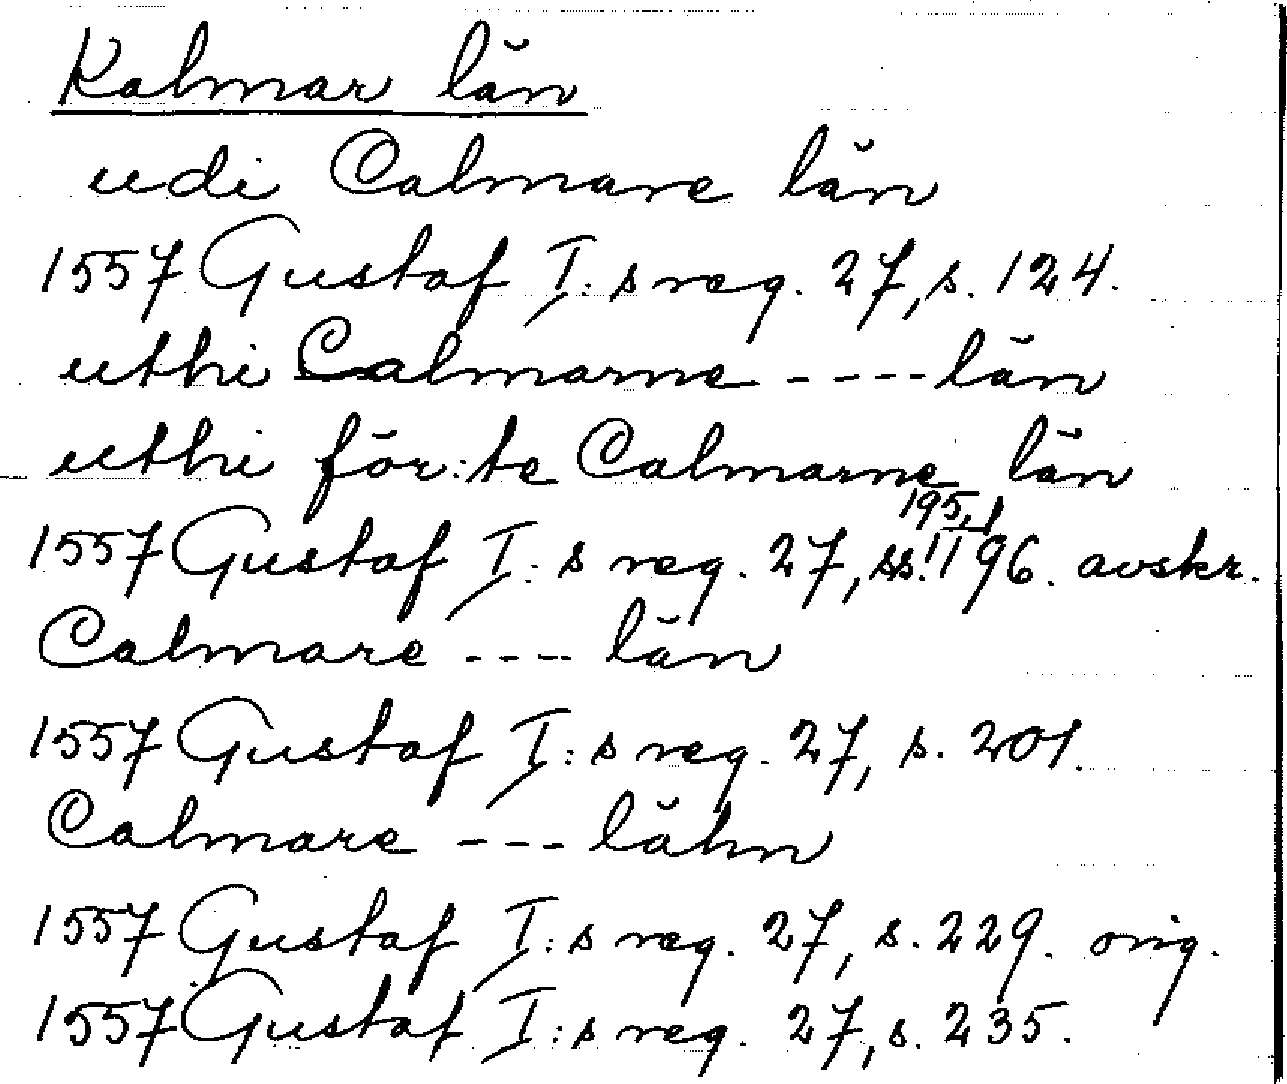 Kalmar län
udi Calmare län
1557 Gustaf I:s reg. 27, s. 124.
uthi Calmarne ---- län
uthi för:te Calmarne län
1557 Gustaf I:s reg. 27, ss. 195, 196. avskr.
Calmare ---- län
1557 Gustaf I:s reg. 27, s. 201.
Calmare --- lähn
1557 Gustaf I:s reg. 27, s. 229. orig.
1557 Gustaf I:s reg. 27, s. 235.